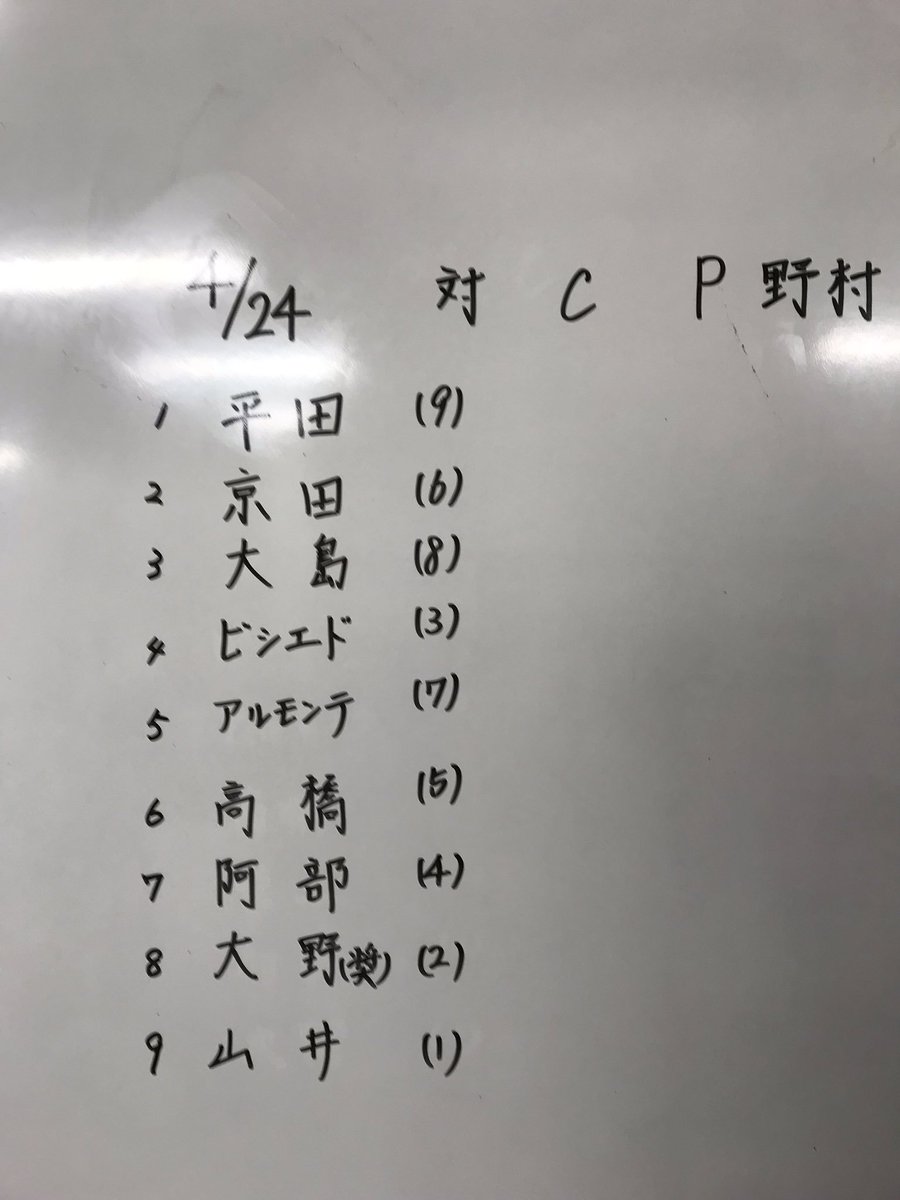 4/24 対 C P 野村
1 平田 (9)
2 京田 (6)
3 大島 (8)
4 ビシエド (3)
5 アルモンテ (7)
6 高橋 (5)
7 阿部 (4)
8 大野(奨) (2)
9 山井 (1)